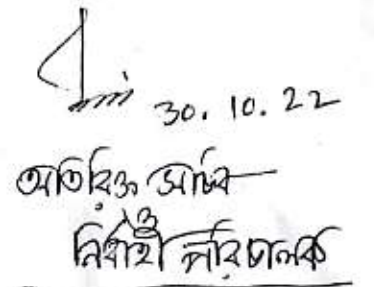 30.10.22
অতিরিক্ত সচিব
ও
নির্বাহী পরিচালক